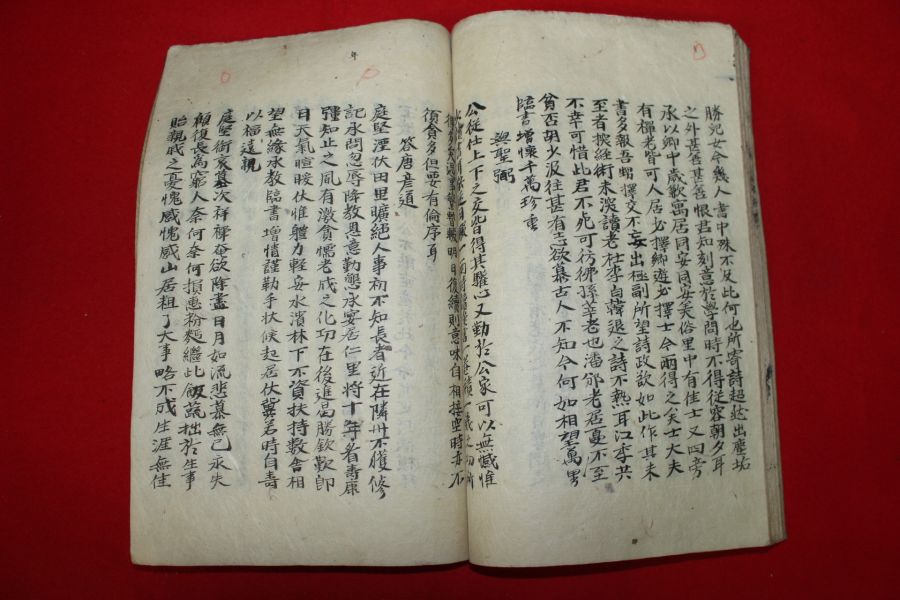 勝紀女今幾人書中殊不及此何也所寄詩超越出塵垢
之外甚善甚善恨君知刻意於學問時不得從容朝夕耳
承以鄉中歲歉寓居同安同安美俗里中有佳士又四旁
有櫃老皆可人居必擇鄉遊必擇士今兩得之矣士大夫
書多報吾甥擇交不妄出極副所望詩政欲如此作其未
至者探經術未深讀老杜李白韓退之詩不熟耳江季共
不幸可惜此君不死可彷彿孫莘老也潘邠老居憂不至
貧否胡少汲往甚有志欲慕古人不知今何如相望萬里
臨書增懷千萬珍重
與聖弼
公從仕上下之交皆得其驩心又勤於公家可以無憾惟
明日復續則意味自相接空時亦不
須貪多但要有倫序耳
答唐彥道
庭堅湮伏田里曠絕人事初不知長者近在隣州不獲修
記承問忽辱降教恩意勤懇承宴居仁里將十年看壽康
彊知止之風有激貪懦老成之化功在後進曷勝欽歎即
日天氣暄暖伏惟軆力輕妥水濱林下不資扶持數舍相
望無緣承教臨書增情謹勒手狀候起居伏冀若時自壽
以福遠親
庭堅銜哀纂次祥禫奄欲降盡日月如流悲慕無已永失
顧復長為窮人奈何奈何損惠粉麵繼此飯蔬拙於生事
貽親戚之憂愧感愧感山居粗了大事略不成生涯無佳